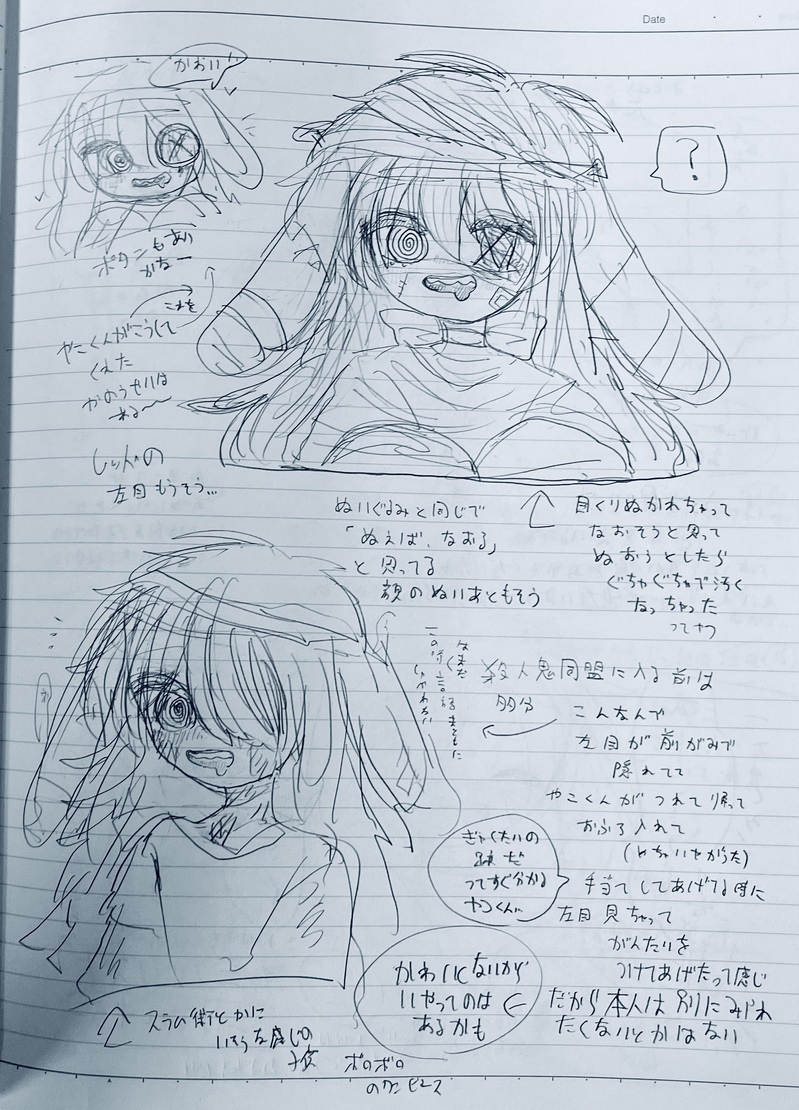 Date
かおい
?
ボタンもあり
かなー
これを
やこくんがこうして
くえた
かのうせいは
ある〜
しりんの
左目もうそう…
ぬいぐるみと同じで
「ぬえば、なおる」
と思ってる
顔のぬいあともそう
目くりぬかれちゃって
なおそうと思って
ぬおうとしたら
ぐちゃぐちゃで汚く
なっちゃった
殺人鬼同盟に入る前は
多分
こんなんで
左目が前がみで
隠れてて
やこくんがつれて帰って
おふろ入れて
(めちゃいやがった)
手当てしてあげてる時に
左目見ちゃって
がんたいを
つけてあげたって感じ
だから本人は別にみられ
たくないとかはない
ぎゃくたいの
跡だ
ってすぐ分かる
やこくん…
かわいくないから
いやってのは
あるかも
スラム街とかに
いそうな感じの
子供
ボロボロ
のワンピース